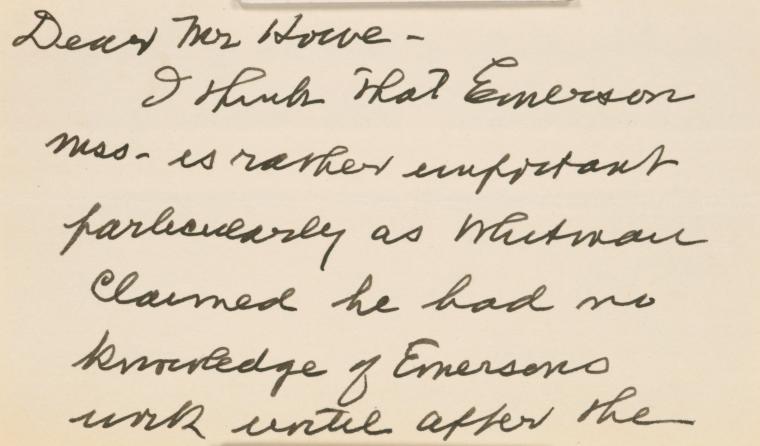 Dear Mr Howe -
I think that Emerson
mss- is rather important
particularly as Whitman
Claimed he had no
knowledge of Emersons
work until after the